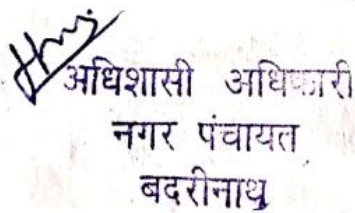 अधिशासी अधिकारी
नगर पंचायत
बदरीनाथ